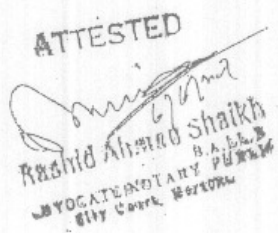 ATTESTED
Rashid Ahmad Shaikh
B.A. LL.B
ADVOCATE NOTARY PUBLIC
City Court,